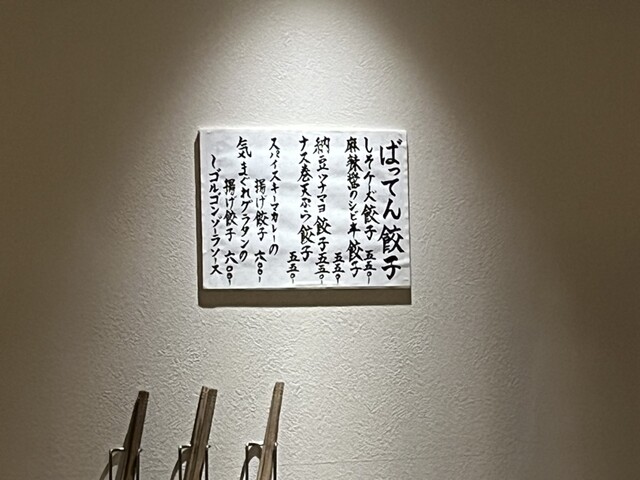 ばってん餃子
しそチーズ餃子 五五〇-
麻辣醤のシビ辛餃子 五五〇-
納豆ツナマヨ餃子 五五〇-
ナス巻天ぷら餃子 五五〇-
スパイスキーマカレーの
揚げ餃子 六〇〇-
気まぐれグラタンの
揚げ餃子 六〇〇-
〜ゴルゴンゾーラソース